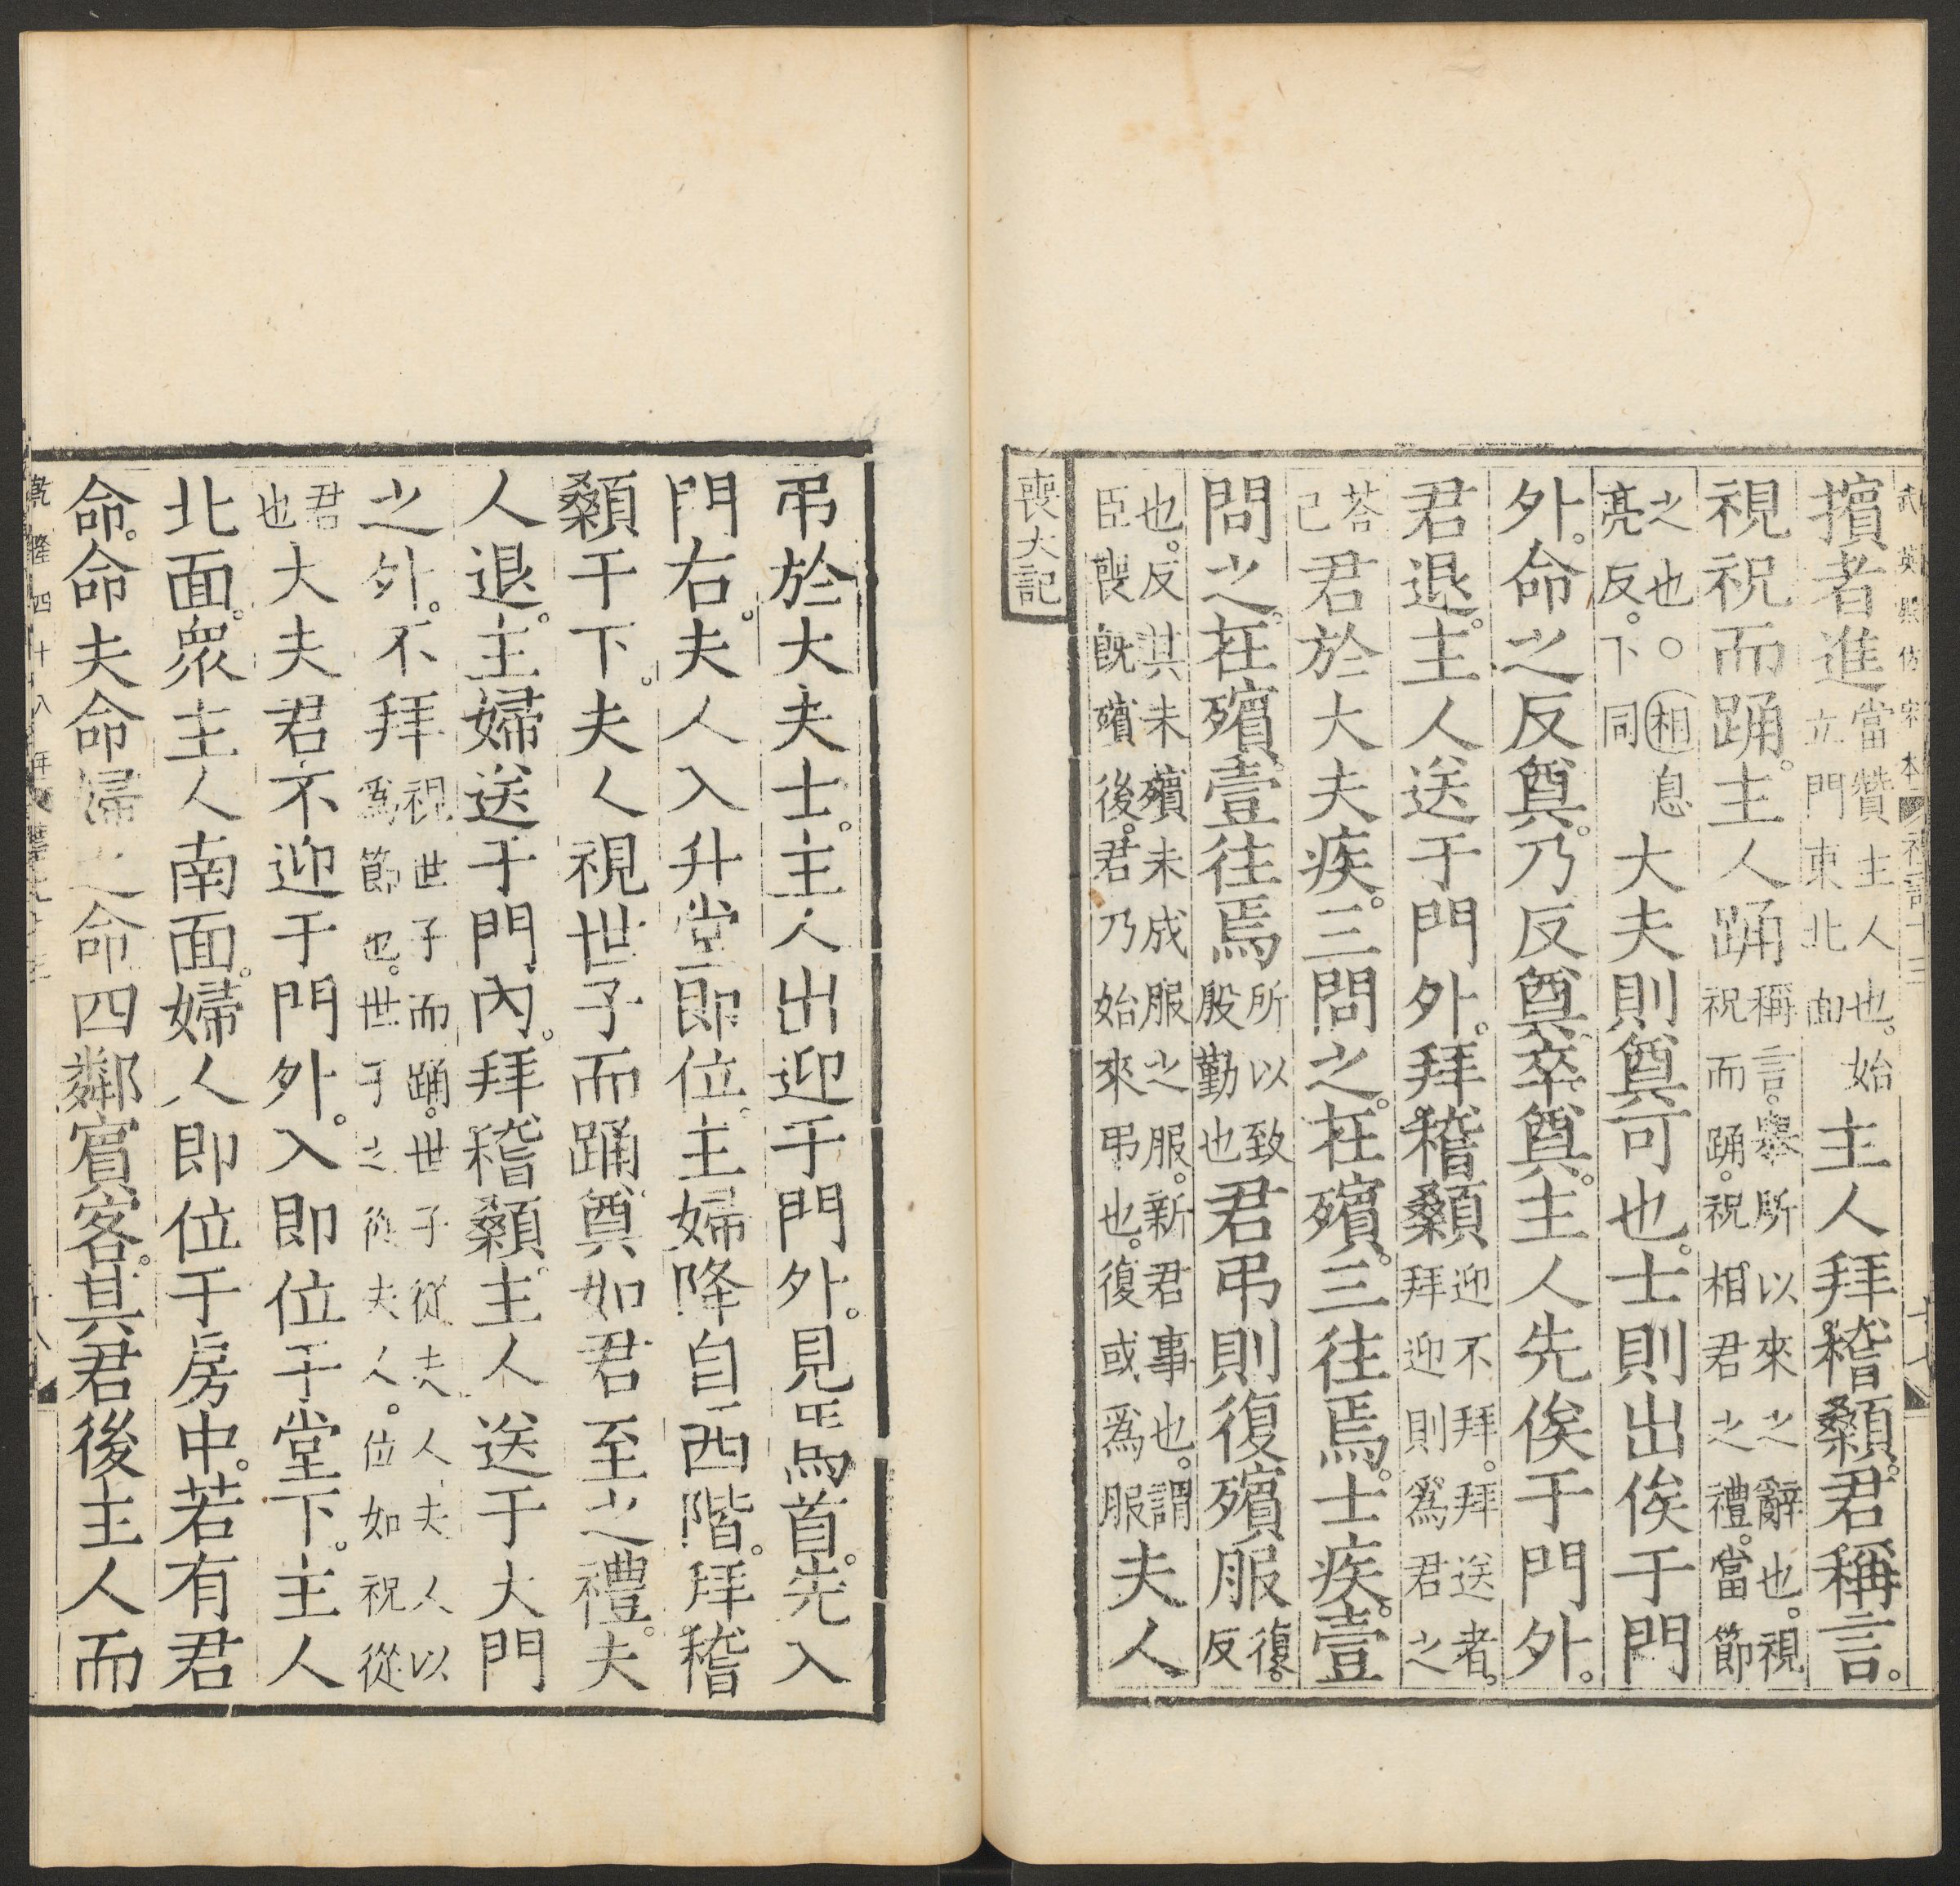 武英殿仿宋本 禮記十三 十七
擯者進當贊主人也。始立門東北面主人拜稽顙。君稱言。
視祝而踊。主人踊稱言。舉所以來之辭也。視祝而踊。祝相君之禮。當節
之也。○相息亮反。下同大夫則奠可也。士則出俟于門
外。命之反奠。乃反奠。卒奠。主人先俟于門外。
君退。主人送于門外。拜稽顙迎不拜。拜送者。拜迎則爲君之
荅己君於大夫疾。三問之。在殯。三往焉。士疾。壹
問之。在殯。壹往焉所以致殷勤也君弔則復殯服復。反
也。反其未殯未成服之服。新君事也。謂臣喪旣殯後。君乃始來弔也。復或爲服夫人
喪大記
弔於大夫士。主人出迎于門外。見馬首。先入
門右。夫人入升堂即位。主婦降自西階。拜稽
顙于下。夫人視世子而踊。奠如君至之禮。夫
人退。主婦送于門內。拜稽顙。主人送于大門
之外。不拜視世子而踊。世子從夫人。夫人以爲節也。世子之從夫人。位如祝從
君也大夫君不迎于門外。入即位于堂下。主人
北面。衆主人南面。婦人即位于房中。若有君
命。命夫命婦之命四鄰賓客。其君後主人而
乾隆四十八年